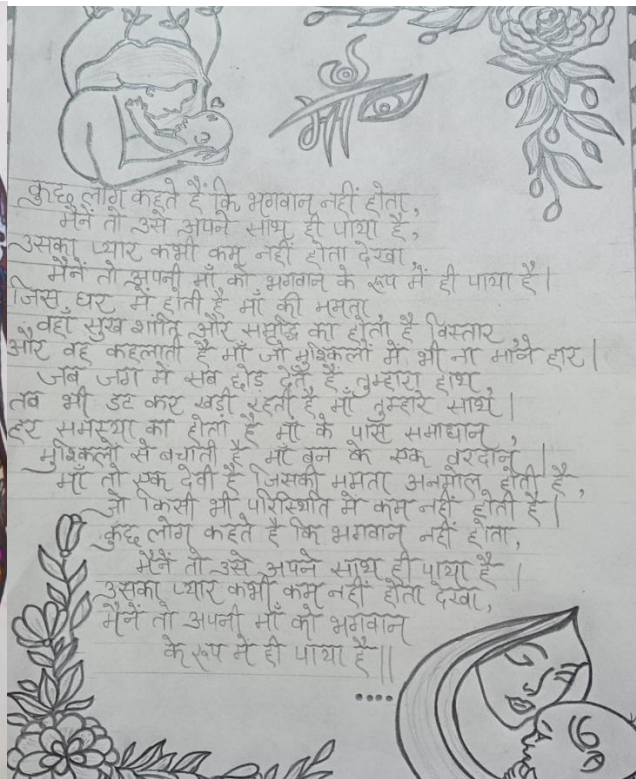 माँ
कुछ लोग कहते हैं कि भगवान नहीं होता,
मैनें तो उसे अपने साथ ही पाया है,
उसका प्यार कभी कम नहीं होता देखा,
मैनें तो अपनी माँ को भगवान के रूप में ही पाया है।
जिस घर में होती है माँ की ममता,
वहाँ सुख शांति और समृद्धि का होता है विस्तार
और वह कहलाती है माँ जो मुश्किलों में भी ना माने हार।
जब जग में सब छोड़ देते हैं तुम्हारा हाथ,
तब भी डट कर खड़ी रहती है माँ तुम्हारे साथ।
हर समस्या का होता है माँ के पास समाधान,
मुश्किलों से बचाती है माँ बन के एक वरदान।
माँ तो एक देवी है जिसकी ममता अनमोल होती है,
जो किसी भी परिस्थिति में कम नहीं होती है।
कुछ लोग कहते है कि भगवान नहीं होता,
मैनें तो उसे अपने साथ ही पाया है।
उसका प्यार कभी कम नहीं होता देखा,
मैनें तो अपनी माँ को भगवान
के रूप में ही पाया है।।
....